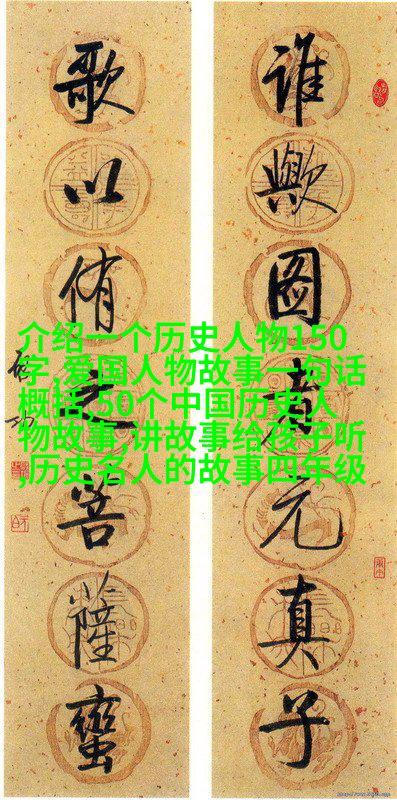 谁歟图者元真子
歌以侑之菩薩蠻
介绍一个历史人物150
字,爱国人物故事一句话
概括,50个中国历史人
物故事,讲故事给孩子听
,历史名人的故事四年级